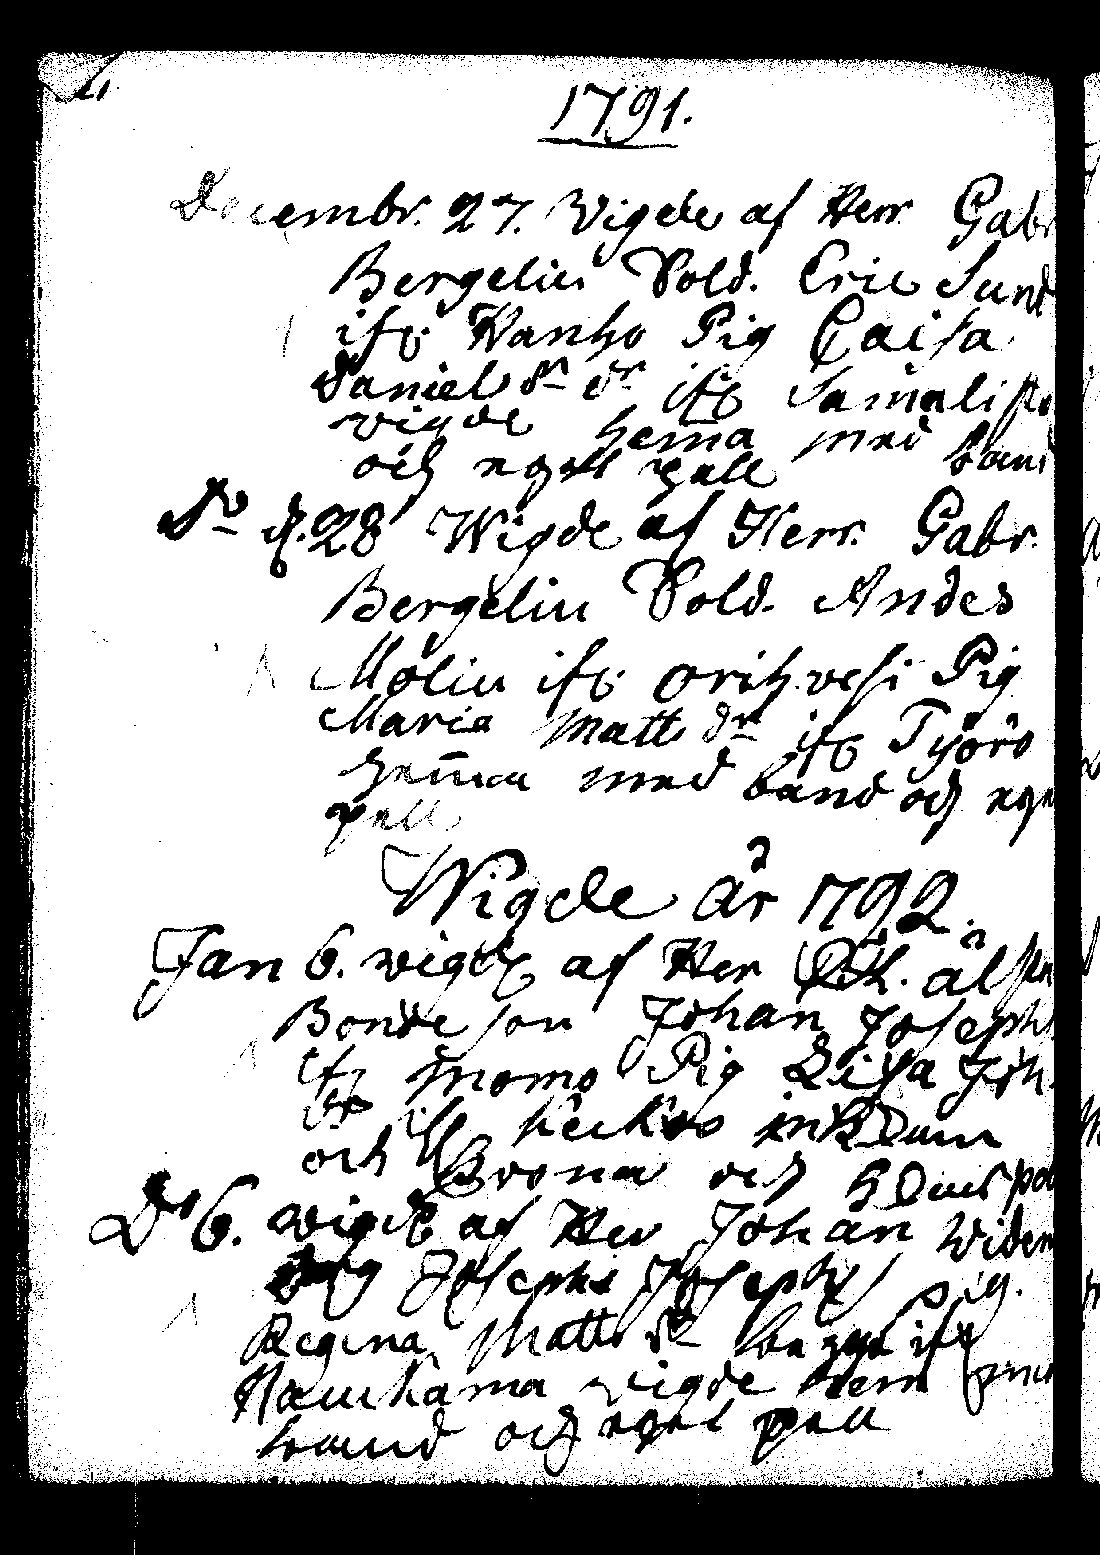 1791.
Decembr. 27. Vigde af Herr Gabr
Bergeliu Sold. Eric Sund
ifr. Wanho Pig Caisa
Daniels dr ifr Samalisto
vigde hema med band
och eget pell
Do d. 28 Wigde af Herr. Gabr.
Bergeliu Sold. Andes
Moliu ifr. orihvesi Pig
Maria Matts dr ifr Työrö
hemma med band och ege
pell
Wigde år 1792.
Jan 6. vigde af Her älste
Bonde son Johan Joseph
ifr Momo Pig Lisa Joh.
dr ifr
och Brona och
Do 6. vigde af Her Johan Widen
Josephs Josephs pig.
Regina Matts dr begge ifr
Hauhama vigde hem med
band och eget pell